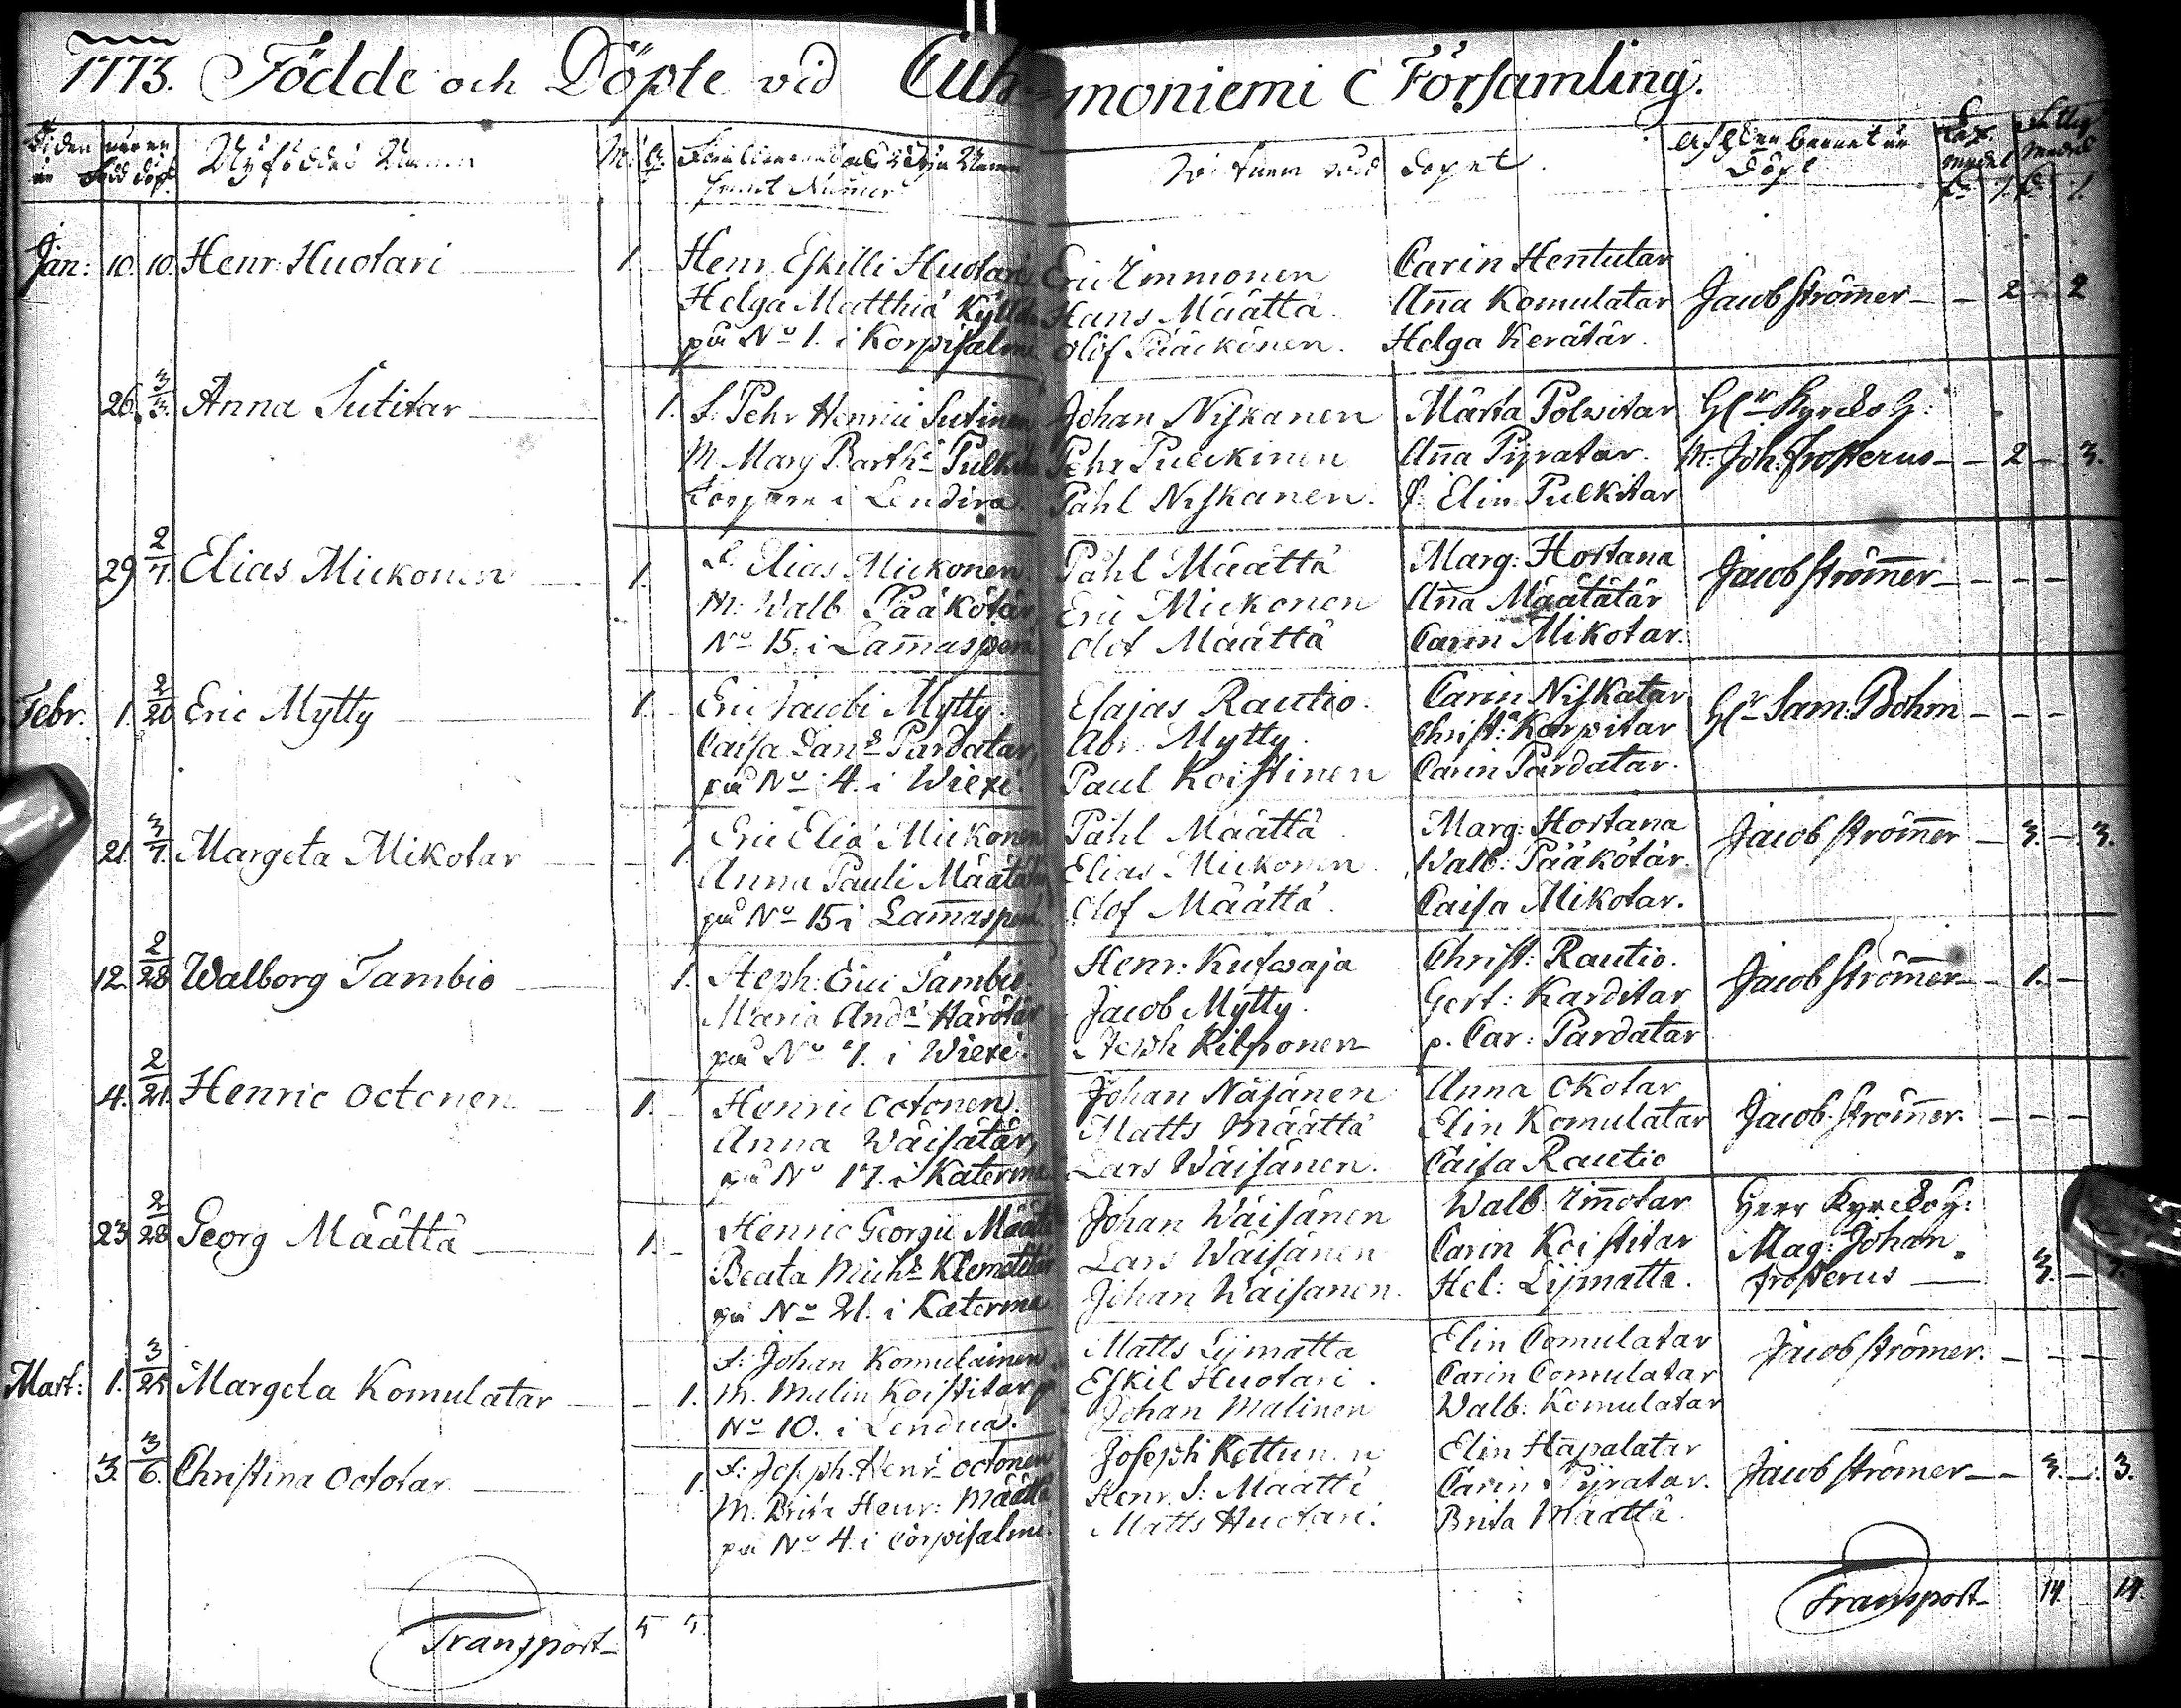 1773. Födde och Döpte vid Cuhmoniemi Församling.
Tiden när en är född döpt
Nyföddes Namn
M. Q.
Witnen vid dopet.
Af hwem barnet är döpt
Jan: 10. 10. Henr: Huotari 1.
Henr. Eskilli Huotari
Helga Matthiæ
på No 1. i Korpisalmi
Eric Immonen
Hans Määttä
Olof Pääckönen.
Carin Hentutar
Anna Komulatar
Helga Kerätär.
Jacob Strömer 2 2
26. 3/3. Anna Sutitar 1.
F. Pehr Henrici Sutinen
M. Marg Barth:
Torpare i Lendira.
Johan Niskanen
Pehr Pulckinen
Påhl Niskanen.
Märta Polvitar
Anna Pyratar.
p. Elin Pulkitar
Hr Kyrckoh:
M: Joh: Frosterus 2 3.
29 2/7. Elias Mickonen 1.
F. Elias Mickonen.
M: Walb Pääkötär,
No 15. i Lammaspera
Påhl Määttä
Eric Mickonen
Olof Määttä
Marg: Hortana
Anna Määtätär
Carin Mikotar.
Jacob Strömer
Febr. 1. 2/20 Eric Mytty 1.
Eric Jacobi Mytty.
Caisa Dans Pardatar,
på No 4. i Wiexi.
Esajas Rautio.
Abr. Mytty.
Paul Koistinen
Carin Niskatar
Christ: Korpitar
Carin Pardatar.
Hr Sam: Bohm
21. 3/7. Margeta Mikotar 1.
Eric Eliæ Mickonen
Anna Pauli Määtätär
på No 15 i Lammasperä.
Påhl Määttä
Elias Mickonen
Olof Määttä.
Marg: Hortana
Walb: Pääkötär.
Caisa Mikotar.
Jacob Strömer 3. 3.
12. 2/28 Walborg Tambio 1.
Steph: Erici Tambio.
Maria And: Härötär
på No 7. i Wiexi.
Henr: Kutvaja
Jacob Mytty.
Steph Kilponen
Christ: Rautio.
Gert: Karditar
p. Car: Pardatar
Jacob Strömer 1.
4. 2/21. Henric Octonen 1.
Henric Octonen.
Anna Wäisätär,
på No 17. i Katerma
Johan Näsänen
Matts Määttä
Lars Wäisänen.
Anna Okotar
Elin Komulatar
Caisa Rautio
Jacob Strömer.
23 2/28 Georg Määttä 1.
Henric Georgii Määttä
Beata Michs Klemetitar
på No 21. i Katerma.
Johan Wäisänen
Lars Wäisänen
Johan Wäisänen.
Walb: Immotar
Carin Koistitar
Hel: Lijmatta.
Herr Kyrckoh:
Mag: Johan
Frosterus 3.
Mart: 1. 3/25 Margeta Komulatar 1.
F: Johan Komulainen
M. Malin Koistitar p
No 10. i Lendua.
Matts Lijmatta
Eskil Huotari.
Johan Malinen
Elin Comulatar
Carin Comulatar
Walb: Komulatar
Jacob Strömer.
3. 3/6. Christina Octotar 1.
F: Joseph Henr: Octonen
M. Brita Henr: Määttä
på No 4. i Corpisalmi.
Joseph Kettunen
Henr. S: Määttä
Matts Huotari.
Elin Hapalatar
Carin Pyratar.
Brita Määttä.
Jacob Strömer 3. 3.
Transport 5 5.
Transport 14. 14.